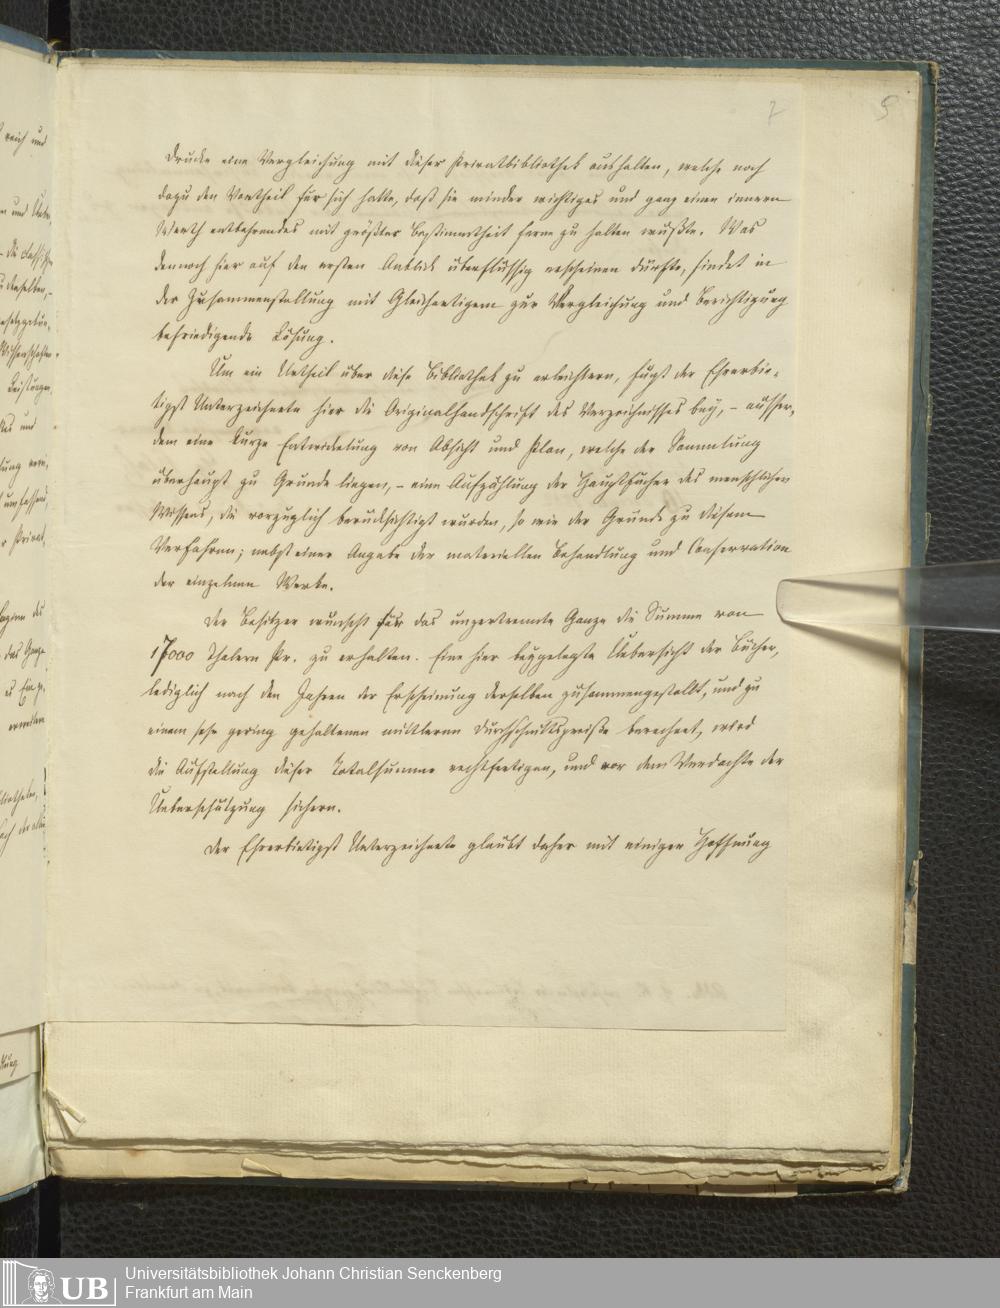 7 5
Drucke eine Vergleichung mit dieser Privatbibliothek aushalten, welche noch
dazu den Vortheil für sich hatte, daß sie minder wichtiges und ganz einen innern
Werth entbehrendes mit größter Bestimmtheit ferne zu halten wußte. Was
dennoch hier auf den ersten Anblick überflüssig erscheinen dürfte, findet in
der Zusammenstellung mit Gleichartigem zur Vergleichung und Berichtigung
befriedigende Lösung.
Um ein Urtheil über diese Bibliothek zu erleichtern, fügt der Ehrerbie-
tigst Unterzeichnete hier die Originalhandschrift des Verzeichnisses bey, – ausser-
dem eine kurze Entwickelung von Absicht und Plan, welche der Sammlung
überhaupt zu Grunde liegen, – eine Aufzählung der Hauptfächer des menschlichen
Wissens, die vorzüglich berücksichtigt wurden, so wie der Gründe zu diesem
Verfahren; nebst einer Angabe der materiellen Behandlung und Conservation
der einzelnen Werke.
Der Besitzer wünscht für das unzertrennte Ganze die Summe von
17000 Thalern Pr. zu erhalten. Eine hier beygelegte Uebersicht der Bücher,
lediglich nach den Jahren der Erscheinung derselben zusammengestellt, und zu
einem sehr gering gehaltenen mittleren Durchschnittspreiße berechnet, wird
die Aufstellung dieser Totalsumme rechtfertigen, und vor dem Verdachte der
Ueberschätzung sichern.
Der Ehrerbietigst Unterzeichnete glaubt daher mit einiger Hoffnung
UB
Universitätsbibliothek Johann Christian Senckenberg
Frankfurt am Main